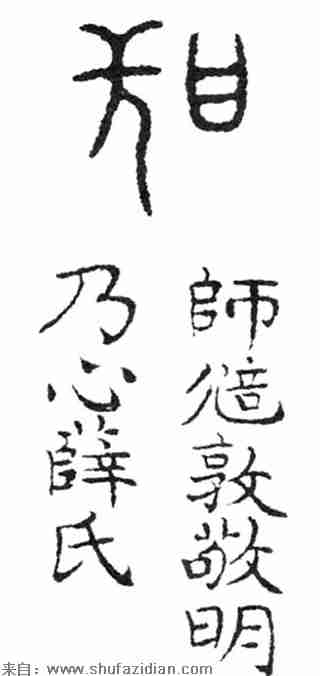 師敦敬明
乃心薛氏
来自：www.shufazidian.com